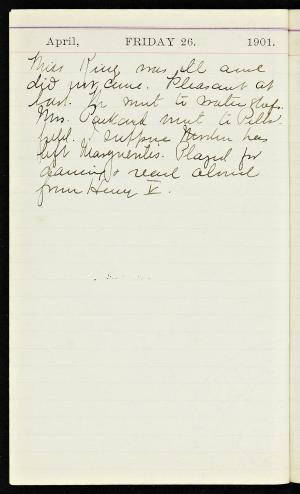 April, FRIDAY 26. 1901.
Miss King was ill and
did not come. Pleasant at
last. Dr. went to Waterford.
Mrs. Packard went to Pitts
field. I suppose has
left Marguerites. Played for
dancing & read aloud
from Henry V.